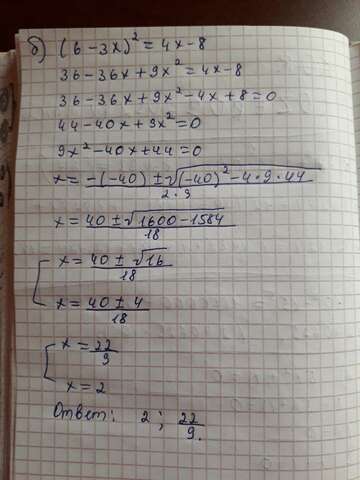 б) (6-3x)² = 4x-8
36-36x+9x² = 4x-8
36-36x+9x²-4x+8=0
44-40x+9x²=0
9x²-40x+44=0
x= -(-40) ± √(-40)²-4·9·44 / 2·9
x= 40 ± √1600-1584 / 18
x= 40 ± √16 / 18
x= 40 ± 4 / 18
x = 22/9
x = 2
Ответ: 2; 22/9.